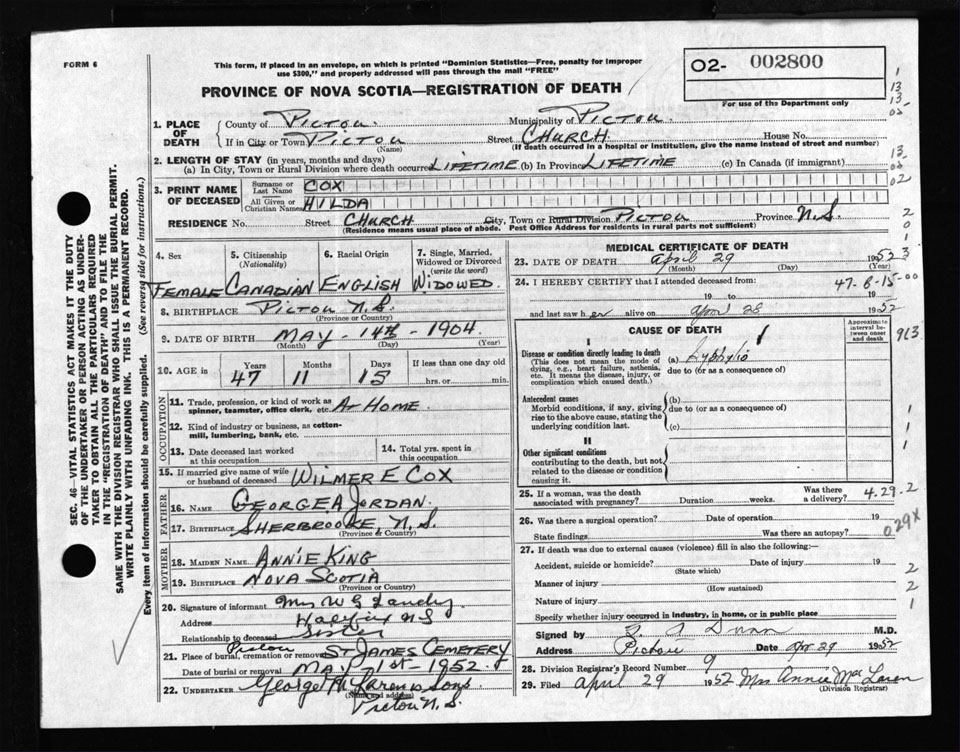 FORM 6
This form, if placed in an envelope, on which is printed "Dominion Statistics—Free, penalty for improper
use $300," and properly addressed will pass through the mail "FREE"
02- 002800
For use of the Department only
PROVINCE OF NOVA SCOTIA—REGISTRATION OF DEATH
1. PLACE OF DEATH
County of PICTOU Municipality of PICTOU
If in City or Town PICTOU (Name) Street CHURCH House No.
(If death occurred in a hospital or institution, give the name instead of street and number)
2. LENGTH OF STAY (in years, months and days)
(a) In City, Town or Rural Division where death occurred LIFETIME (b) In Province LIFETIME (c) In Canada (if immigrant)
3. PRINT NAME OF DECEASED
Surname or Last Name COX
All Given or Christian Names HILDA
RESIDENCE No. Street CHURCH City, Town or Rural Division PICTOU Province N.S.
(Residence means usual place of abode. Post Office Address for residents in rural parts not sufficient)
4. Sex
FEMALE
5. Citizenship (Nationality)
CANADIAN
6. Racial Origin
ENGLISH
7. Single, Married, Widowed or Divorced (write the word)
WIDOWED
8. BIRTHPLACE PICTOU N.S.
(Province or Country)
9. DATE OF BIRTH MAY - 14th - 1904
(Month) (Day) (Year)
10. AGE in Years 47 Months 11 Days 15 If less than one day old hrs. or min.
OCCUPATION
11. Trade, profession, or kind of work as spinner, teamster, office clerk, etc. At HOME
12. Kind of industry or business, as cotton-mill, lumbering, bank, etc.
13. Date deceased last worked at this occupation
14. Total yrs. spent in this occupation
15. If married give name of wife or husband of deceased WILMER E COX
FATHER
16. NAME GEORGE A JORDAN.
17. BIRTHPLACE SHERBROOKE, N.S.
(Province or Country)
MOTHER
18. MAIDEN NAME ANNIE KING
19. BIRTHPLACE NOVA SCOTIA
(Province or Country)
20. Signature of informant Mrs W G Landry
Address Halifax N S
Relationship to deceased Sister
21. Place of burial, cremation or removal Pictou ST JAMES CEMETERY
Date of burial or removal MAY 1st - 1952
22. UNDERTAKER George McLaren & Sons
(Name and address)
Pictou N.S.
MEDICAL CERTIFICATE OF DEATH
23. DATE OF DEATH april 29 1952
(Month) (Day) (Year)
24. I HEREBY CERTIFY that I attended deceased from:
19 to 19
and last saw her alive on april 28 1952
CAUSE OF DEATH
Approximate interval between onset and death
I
Disease or condition directly leading to death (a)
(This does not mean the mode of dying, e.g., heart failure, asthenia, etc. It means the disease, injury, or complication which caused death.)
due to (or as a consequence of)
Antecedent causes (b)
Morbid conditions, if any, giving rise to the above cause, stating the underlying condition last.
due to (or as a consequence of)
(c)
II
Other significant conditions
contributing to the death, but not related to the disease or condition causing it.
25. If a woman, was the death associated with pregnancy? Duration weeks. Was there a delivery?
26. Was there a surgical operation? Date of operation 19
State findings Was there an autopsy?
27. If death was due to external causes (violence) fill in also the following:—
Accident, suicide or homicide? Date of injury 19
(State which)
Manner of injury
(How sustained)
Nature of injury
Specify whether injury occurred in industry, in home, or in public place
Signed by Dunn M.D.
Address Pictou Date Apr 29 1952
28. Division Registrar's Record Number 9
29. Filed april 29 1952 Mrs Annie MacLaren
(Division Registrar)
SEC. 46—VITAL STATISTICS ACT MAKES IT THE DUTY
OF THE UNDERTAKER OR PERSON ACTING AS UNDER-
TAKER TO OBTAIN ALL THE PARTICULARS REQUIRED
IN THE "REGISTRATION OF DEATH" AND TO FILE THE
SAME WITH THE DIVISION REGISTRAR WHO SHALL ISSUE THE BURIAL PERMIT.
WRITE PLAINLY WITH UNFADING INK. THIS IS A PERMANENT RECORD.
Every item of information should be carefully supplied. (See reverse side for instructions.)
1
13
13
02
13
02
02
2
0
1
3
47-8-15-00
913
1
1
1
4.29.2
029X
2
2
1